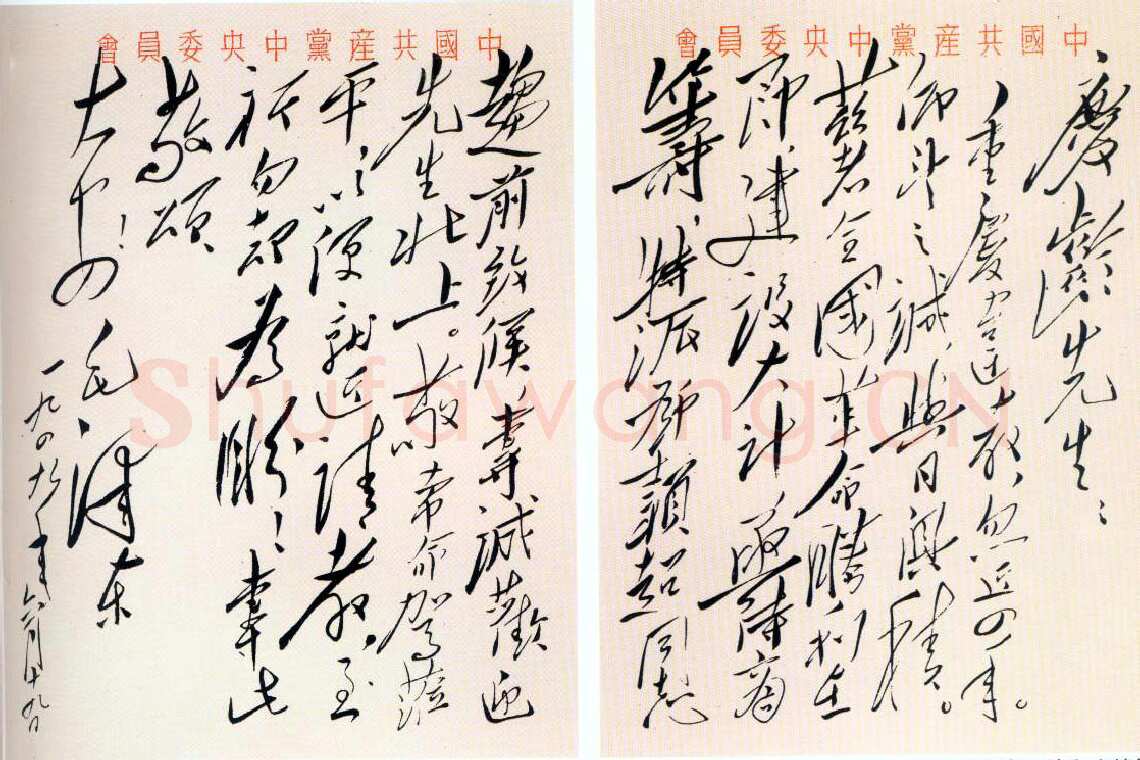 中國共産黨中央委員會
慶齡先生：
重慶違教，忽近四年。
仰望之誠，與日俱積。
茲者全國革命勝利在
即，建設大計，亟待商
籌，特派鄧穎超同志
中國共産黨中央委員會
趨前致候，專誠歡迎
先生北上。敬希命駕蒞
平，以便就近請教，至
祈勿却為盼！專此
敬頌
大安！ 毛澤東
一九四九年六月十九日
Shufawang.CN